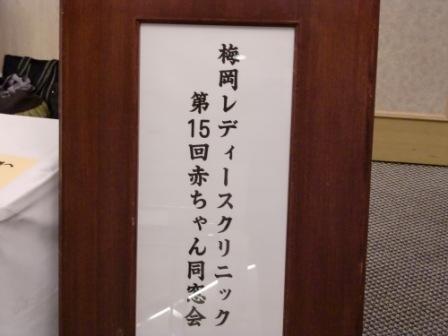 梅岡レディースクリニック
第15回赤ちゃん同窓会